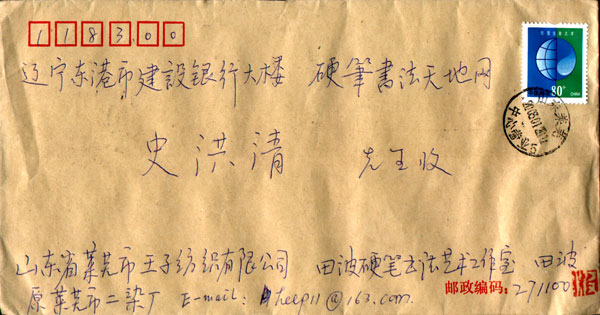 118300
辽宁东港市建設银行大楼 硬筆書法天地网
80
CHINA
史洪清 先生收
山东省莱芜市王子纺织有限公司 田波硬笔书法艺术工作室 田波
原莱芜市二染厂 E-mail: help11@163.com
邮政编码:271100